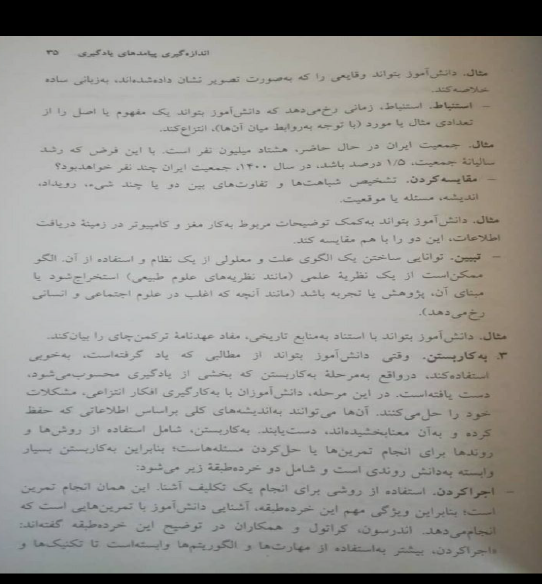 اندازه‌گیری پیامدهای یادگیری ۳۵
مثال. دانش‌آموز بتواند وقایعی را که به‌صورت تصویر نشان داده‌شده‌اند، به‌زبانی ساده
خلاصه‌کند.
– استنباط. استنباط، زمانی رخ‌می‌دهد که دانش‌آموز بتواند یک مفهوم یا اصل را از
تعدادی مثال یا مورد (با توجه به‌روابط میان آن‌ها)، انتزاع‌کند.
مثال. جمعیت ایران در حال حاضر، هشتاد میلیون نفر است. با این فرض که رشد
سالیانهٔ جمعیت، ۱/۵ درصد باشد، در سال ۱۴۰۰، جمعیت ایران چند نفر خواهدبود؟
– مقایسه‌کردن. تشخیص شباهت‌ها و تفاوت‌های بین دو یا چند شیء، رویداد،
اندیشه، مسئله یا موقعیت.
مثال. دانش‌آموز بتواند به‌کمک توضیحات مربوط به‌کار مغز و کامپیوتر در زمینهٔ دریافت
اطلاعات، این دو را با هم مقایسه کند.
– تبیین. توانایی ساختن یک الگوی علت و معلولی از یک نظام و استفاده از آن. الگو
ممکن‌است از یک نظریهٔ علمی (مانند نظریه‌های علوم طبیعی) استخراج‌شود یا
مبنای آن، پژوهش یا تجربه باشد (مانند آنچه که اغلب در علوم اجتماعی و انسانی
رخ‌می‌دهد).
مثال. دانش‌آموز بتواند با استناد به‌منابع تاریخی، مفاد عهدنامهٔ ترکمن‌چای را بیان‌کند.
۳. به‌کاربستن. وقتی دانش‌آموز بتواند از مطالبی که یاد گرفته‌است، به‌خوبی
استفاده‌کند، درواقع به‌مرحلهٔ به‌کاربستن که بخشی از یادگیری محسوب‌می‌شود،
دست یافته‌است. در این مرحله، دانش‌آموزان با به‌کارگیری افکار انتزاعی، مشکلات
خود را حل‌می‌کنند. آن‌ها می‌توانند به‌اندیشه‌های کلی براساس اطلاعاتی که حفظ
کرده و به‌آن معنابخشیده‌اند، دست‌یابند. به‌کاربستن، شامل استفاده از روش‌ها و
روندها برای انجام تمرین‌ها یا حل‌کردن مسئله‌هاست؛ بنابراین به‌کاربستن بسیار
وابسته به‌دانش روندی است و شامل دو خرده‌طبقهٔ زیر می‌شود:
– اجراکردن. استفاده از روشی برای انجام یک تکلیف آشنا. این همان انجام تمرین
است؛ بنابراین ویژگی مهم این خرده‌طبقه، آشنایی دانش‌آموز با تمرین‌هایی است که
انجام‌می‌دهد. اندرسون، کراتول و همکاران در توضیح این خرده‌طبقه گفته‌اند:
«اجراکردن، بیشتر به‌استفاده از مهارت‌ها و الگوریتم‌ها وابسته‌است تا تکنیک‌ها و